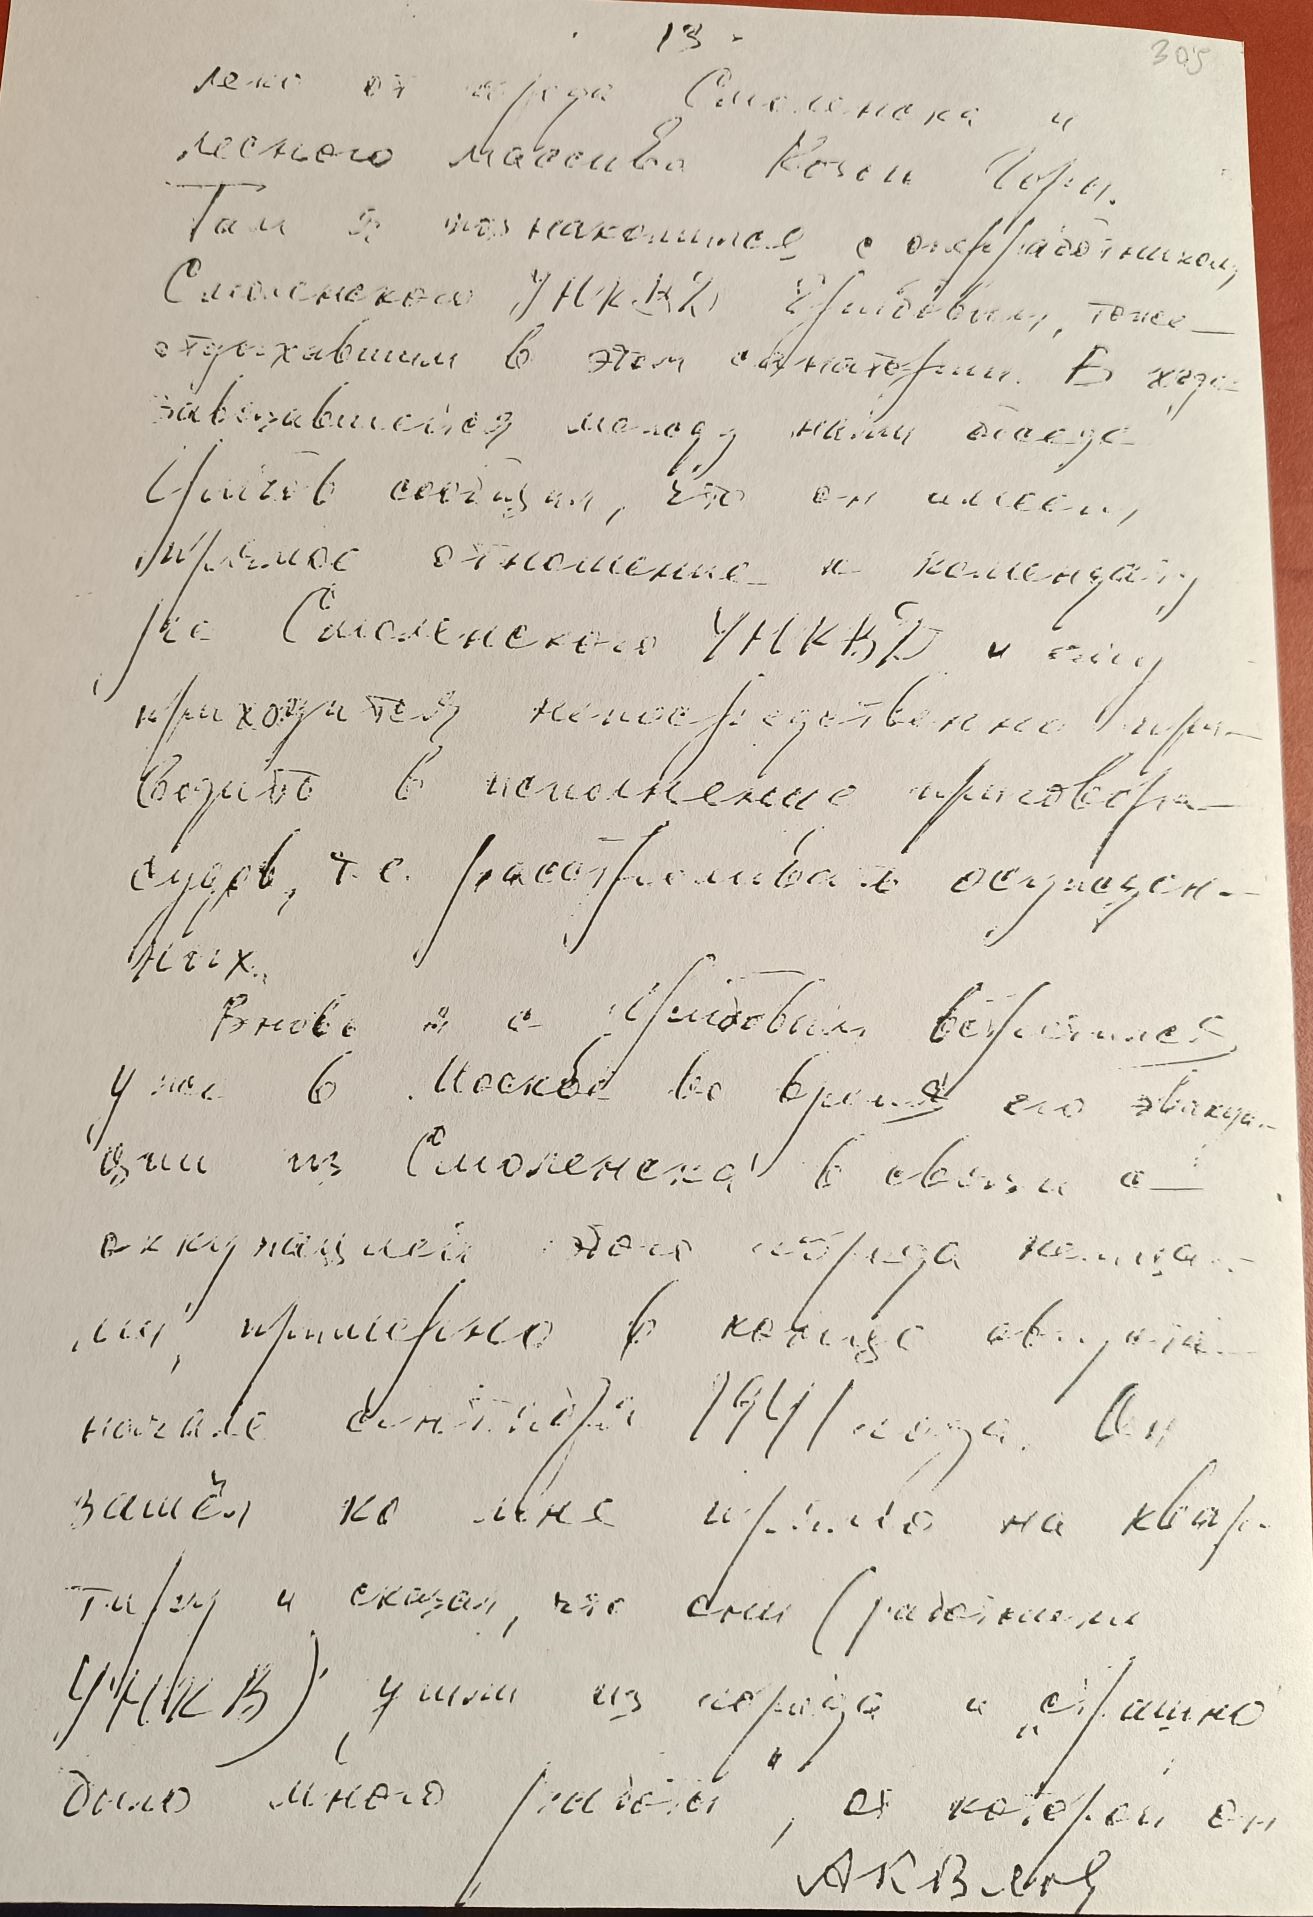 13.
305
леко от города Смоленска и
лесного массива Козьи Горы.
Там я познакомился с оперработником
Смоленского УНКВД Грибовым, тоже
отдыхавшим в этом санатории. В ходе
завязавшейся между нами беседе
Грибов сообщил, что он имеет
прямое отношение к комендату
ре Смоленского УНКВД и ему
приходится непосредственно при-
водить в исполнение приговора
судов, т.е. расстреливать осужден-
ных.
Вновь я с Грибовым встретился
уже в Москве во время его эвакуа-
ции из Смоленска в связи с
оккупацией этого города немца-
ми, примерно в конце августа
начале сентября 1941 года. Он
зашёл ко мне прямо на квар-
тиру и сказал, что они (работники
УНКВ) ушли из города и „страшно
было много работы", от которой он